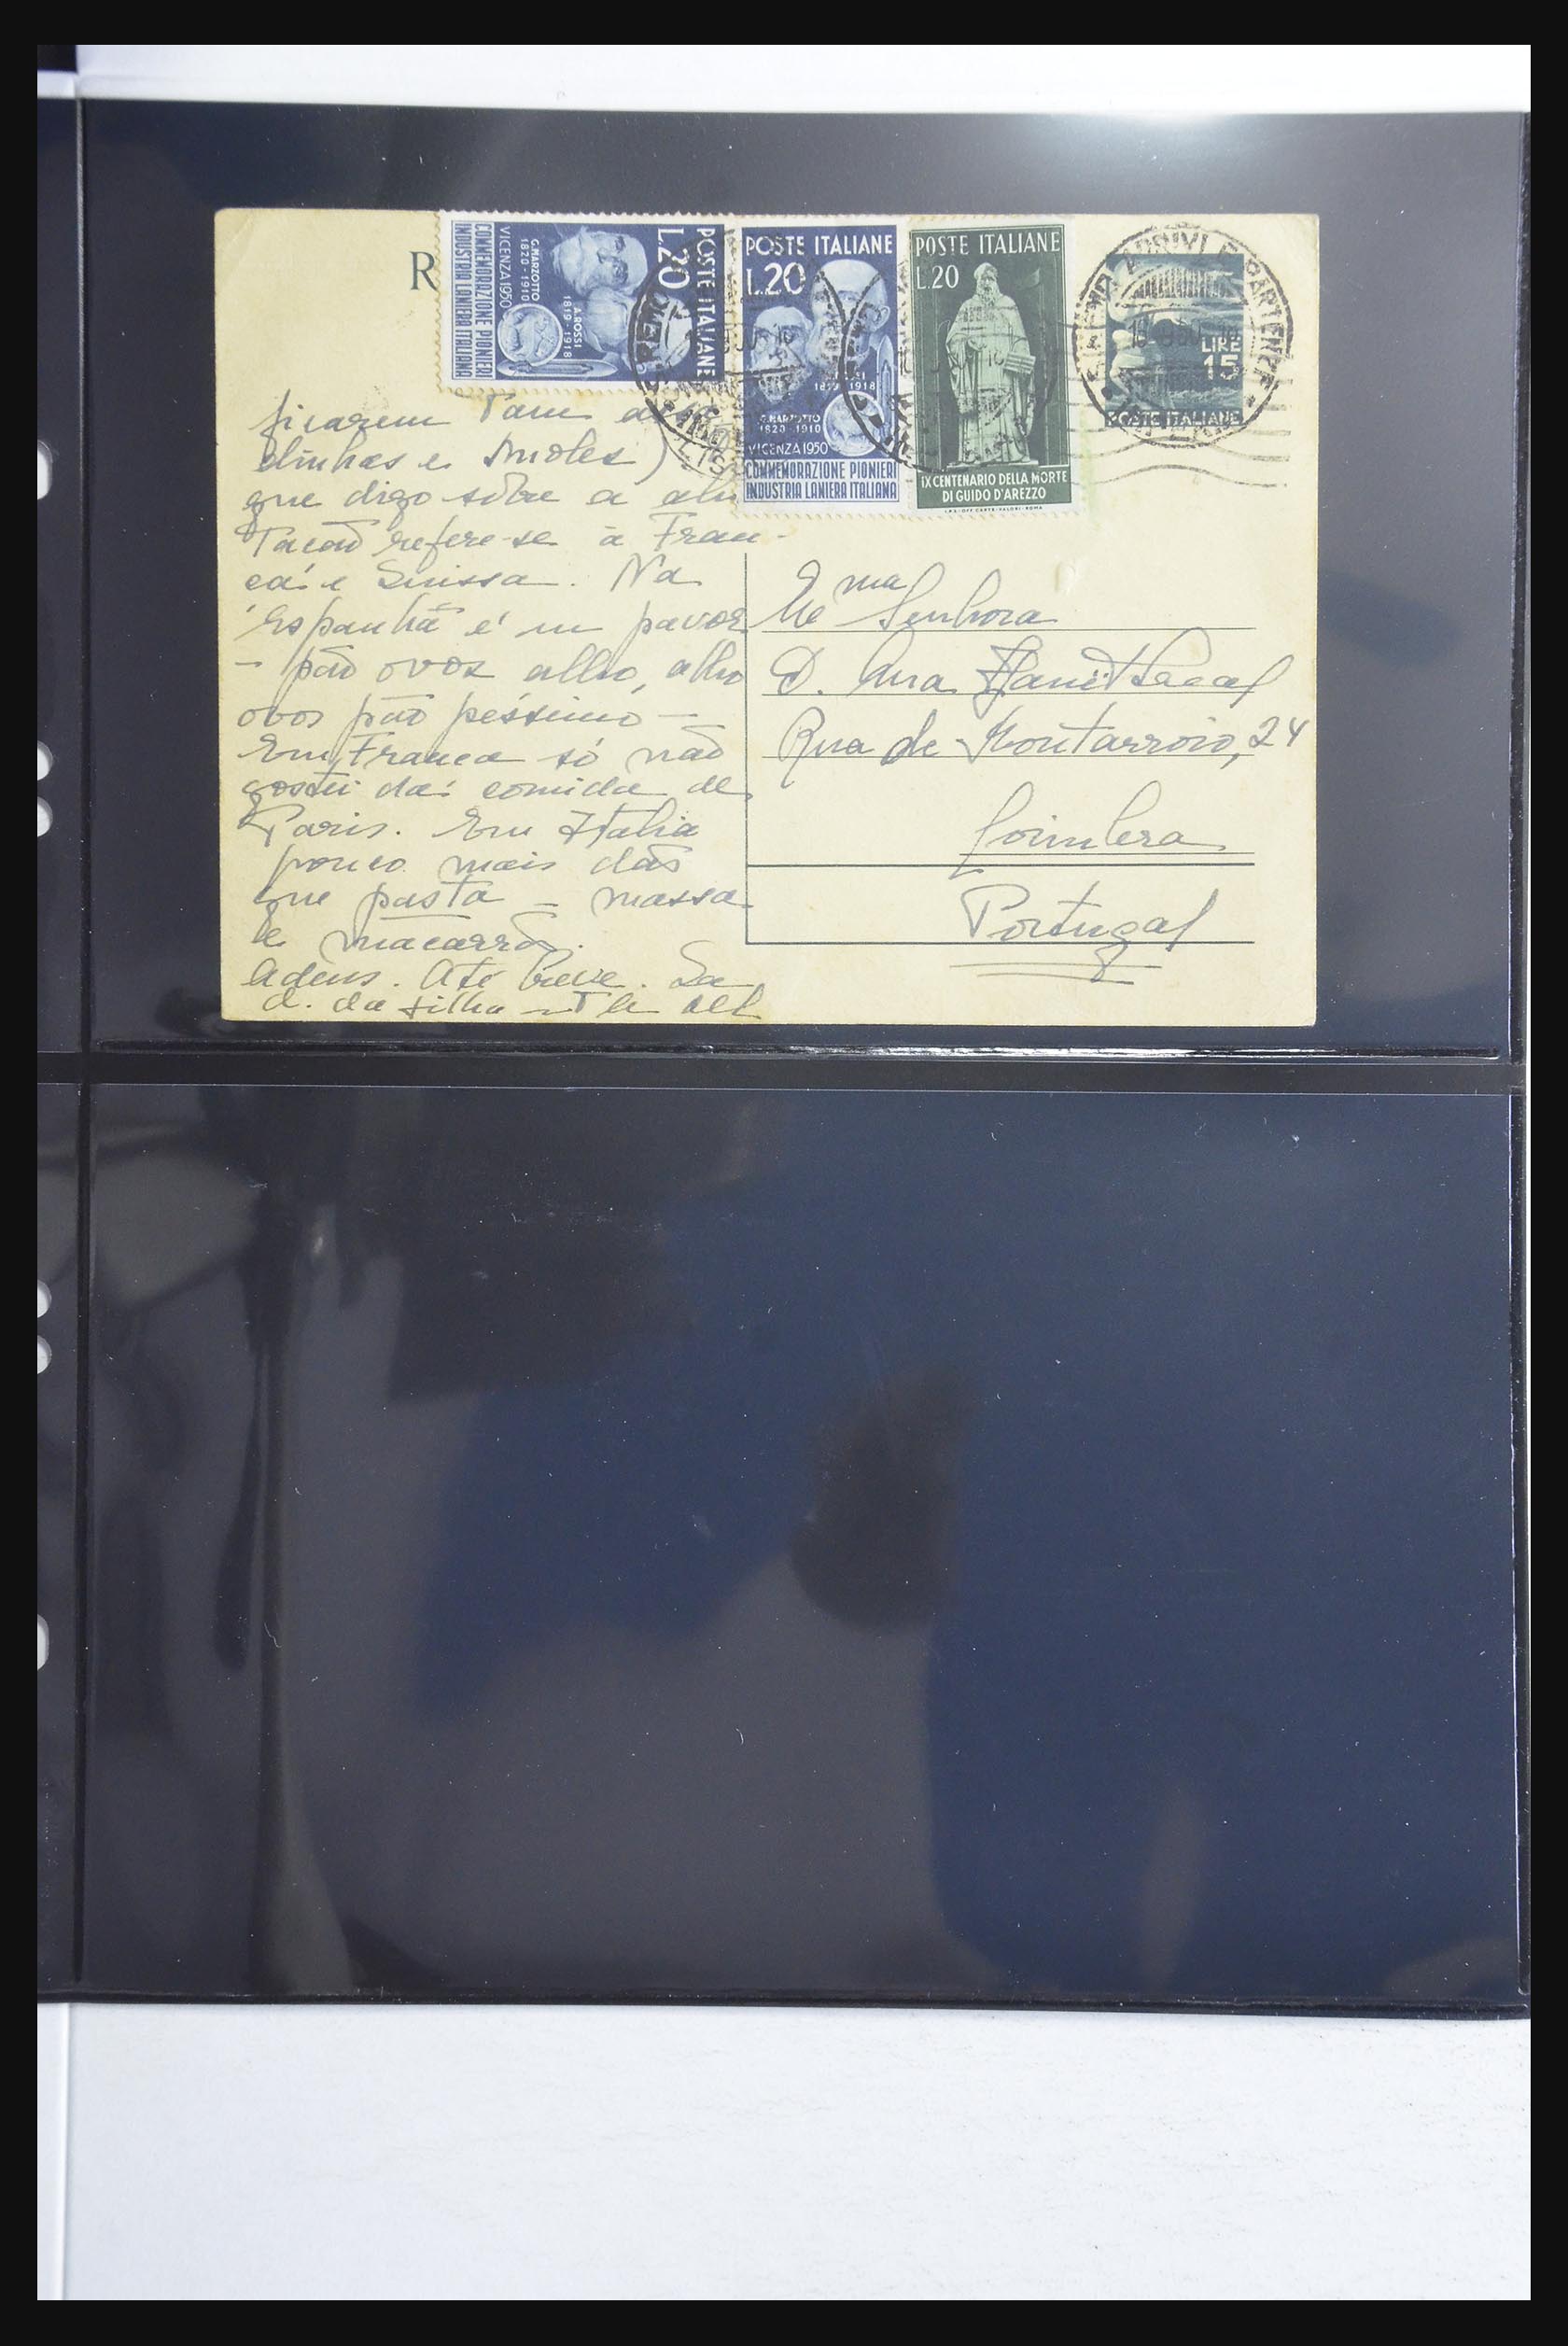 R
POSTE ITALIANE
L.20
G.MARZOTTO
1820-1910
A.ROSSI
1819-1918
VICENZA 1950
COMMEMORAZIONE PIONIERI
INDUSTRIA LANIERA ITALIANA
POSTE ITALIANE
L.20
1819 1918
G.MARZOTTO
1820 1910
VICENZA 1950
COMMEMORAZIONE PIONIERI
INDUSTRIA LANIERA ITALIANA
POSTE ITALIANE
L.20
IX CENTENARIO DELLA MORTE
DI GUIDO D'AREZZO
LIRE
15
POSTE ITALIANE
ficarem
e moles)
que digo sobre a
refere-se à Fran-
ça e Suissa. Na
Espanha é um pavor
- pão ovos alho, alho
ovos pão péssimo -
Em França só não
gostei da comida de
Paris. Em Italia
pouco mais dão
que pasta - massa
e macarrão.
Adeus. Até breve. Sa
d. da filha
Exma Senhora
D. Ana
Rua de Montarroio, 24
Coimbra
Portugal